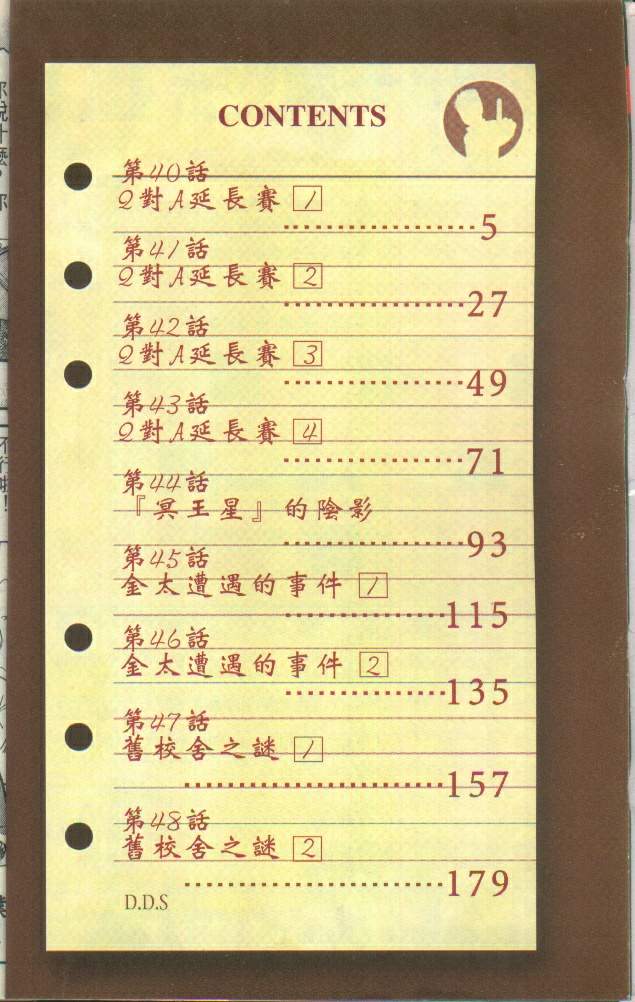 CONTENTS
第40話
Q對A延長賽 1
5
第41話
Q對A延長賽 2
27
第42話
Q對A延長賽 3
49
第43話
Q對A延長賽 4
71
第44話
『冥王星』的陰影
93
第45話
金太遭遇的事件 1
115
第46話
金太遭遇的事件 2
135
第47話
舊校舍之謎 1
157
第48話
舊校舍之謎 2
179
D.D.S